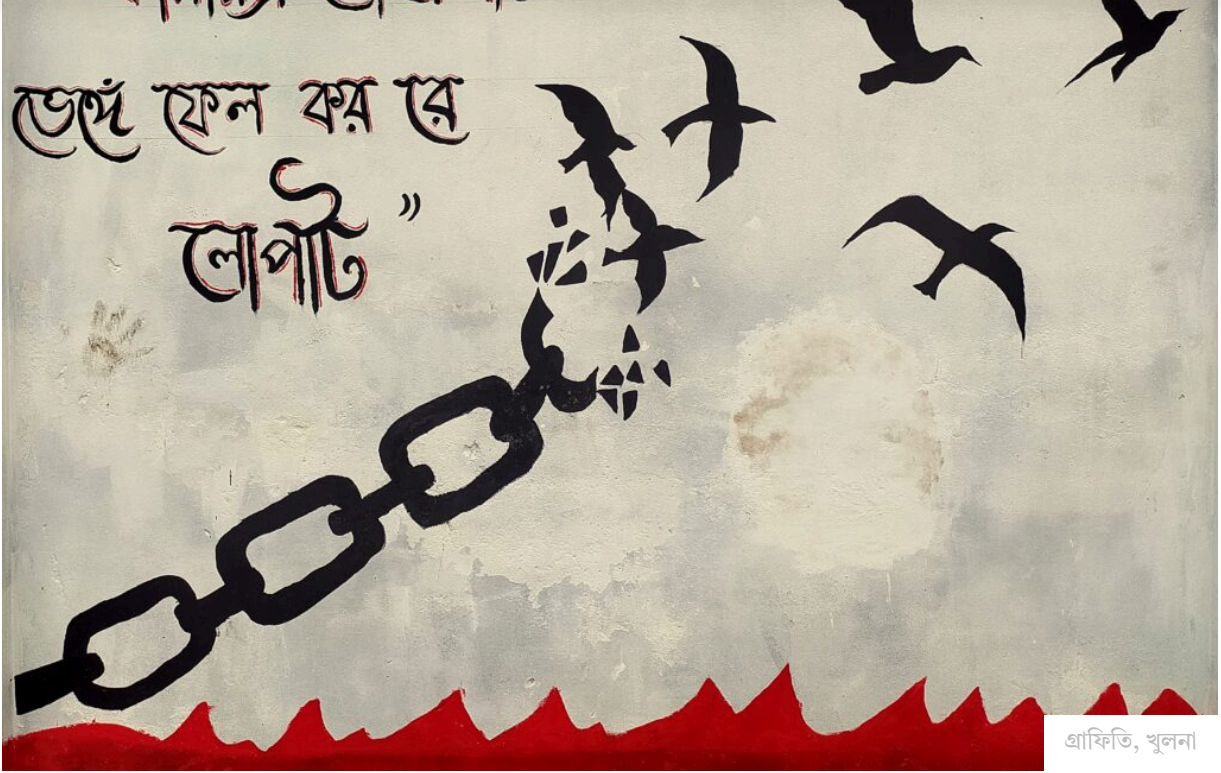 ভেঙ্গে ফেল কর রে
লোপাট”
গ্রাফিতি, খুলনা